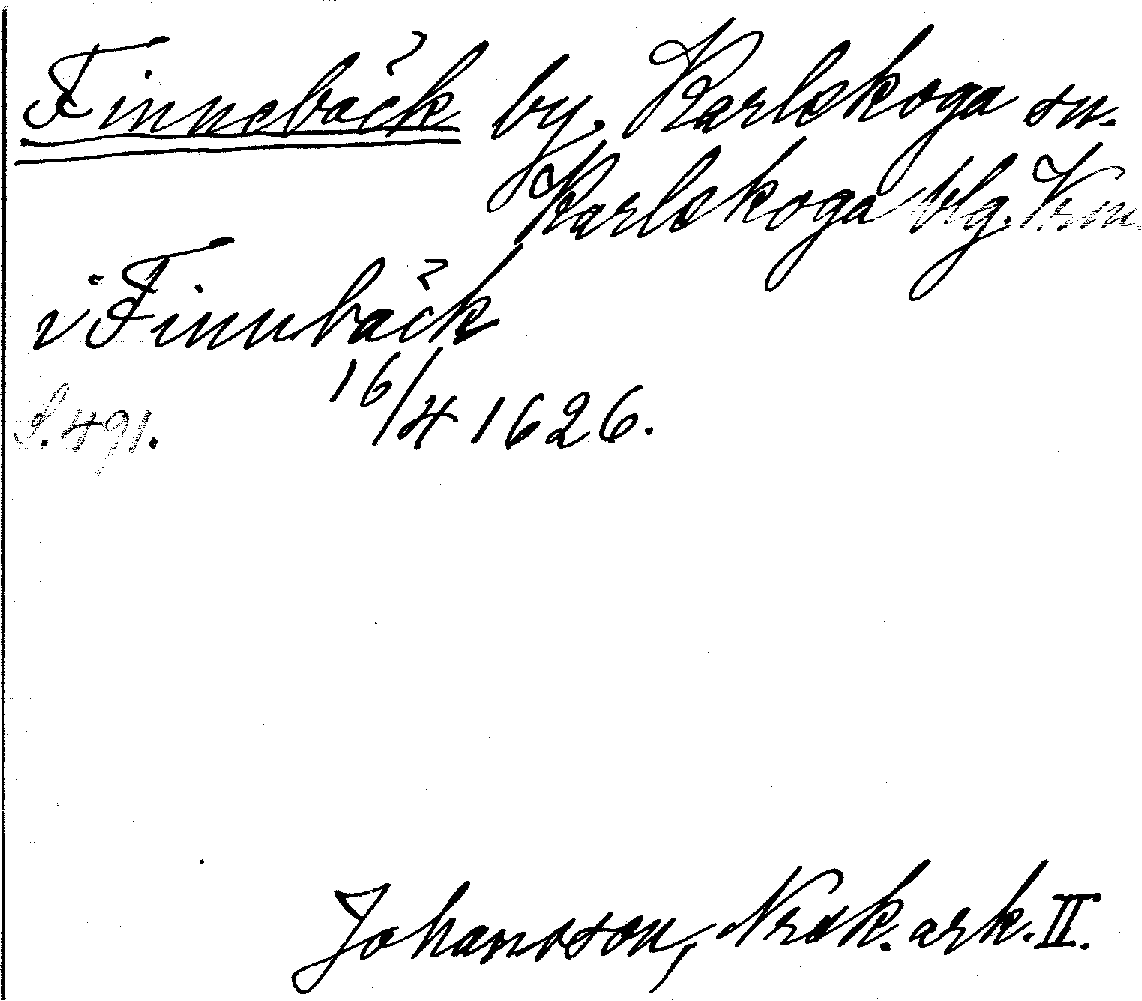 Finnebäck by. Karlskoga sn.
Karlskoga blg. Vrm.
i Finnbäck
S. 491. 16/4 1626.
Johansson, Norsk. ark. II.